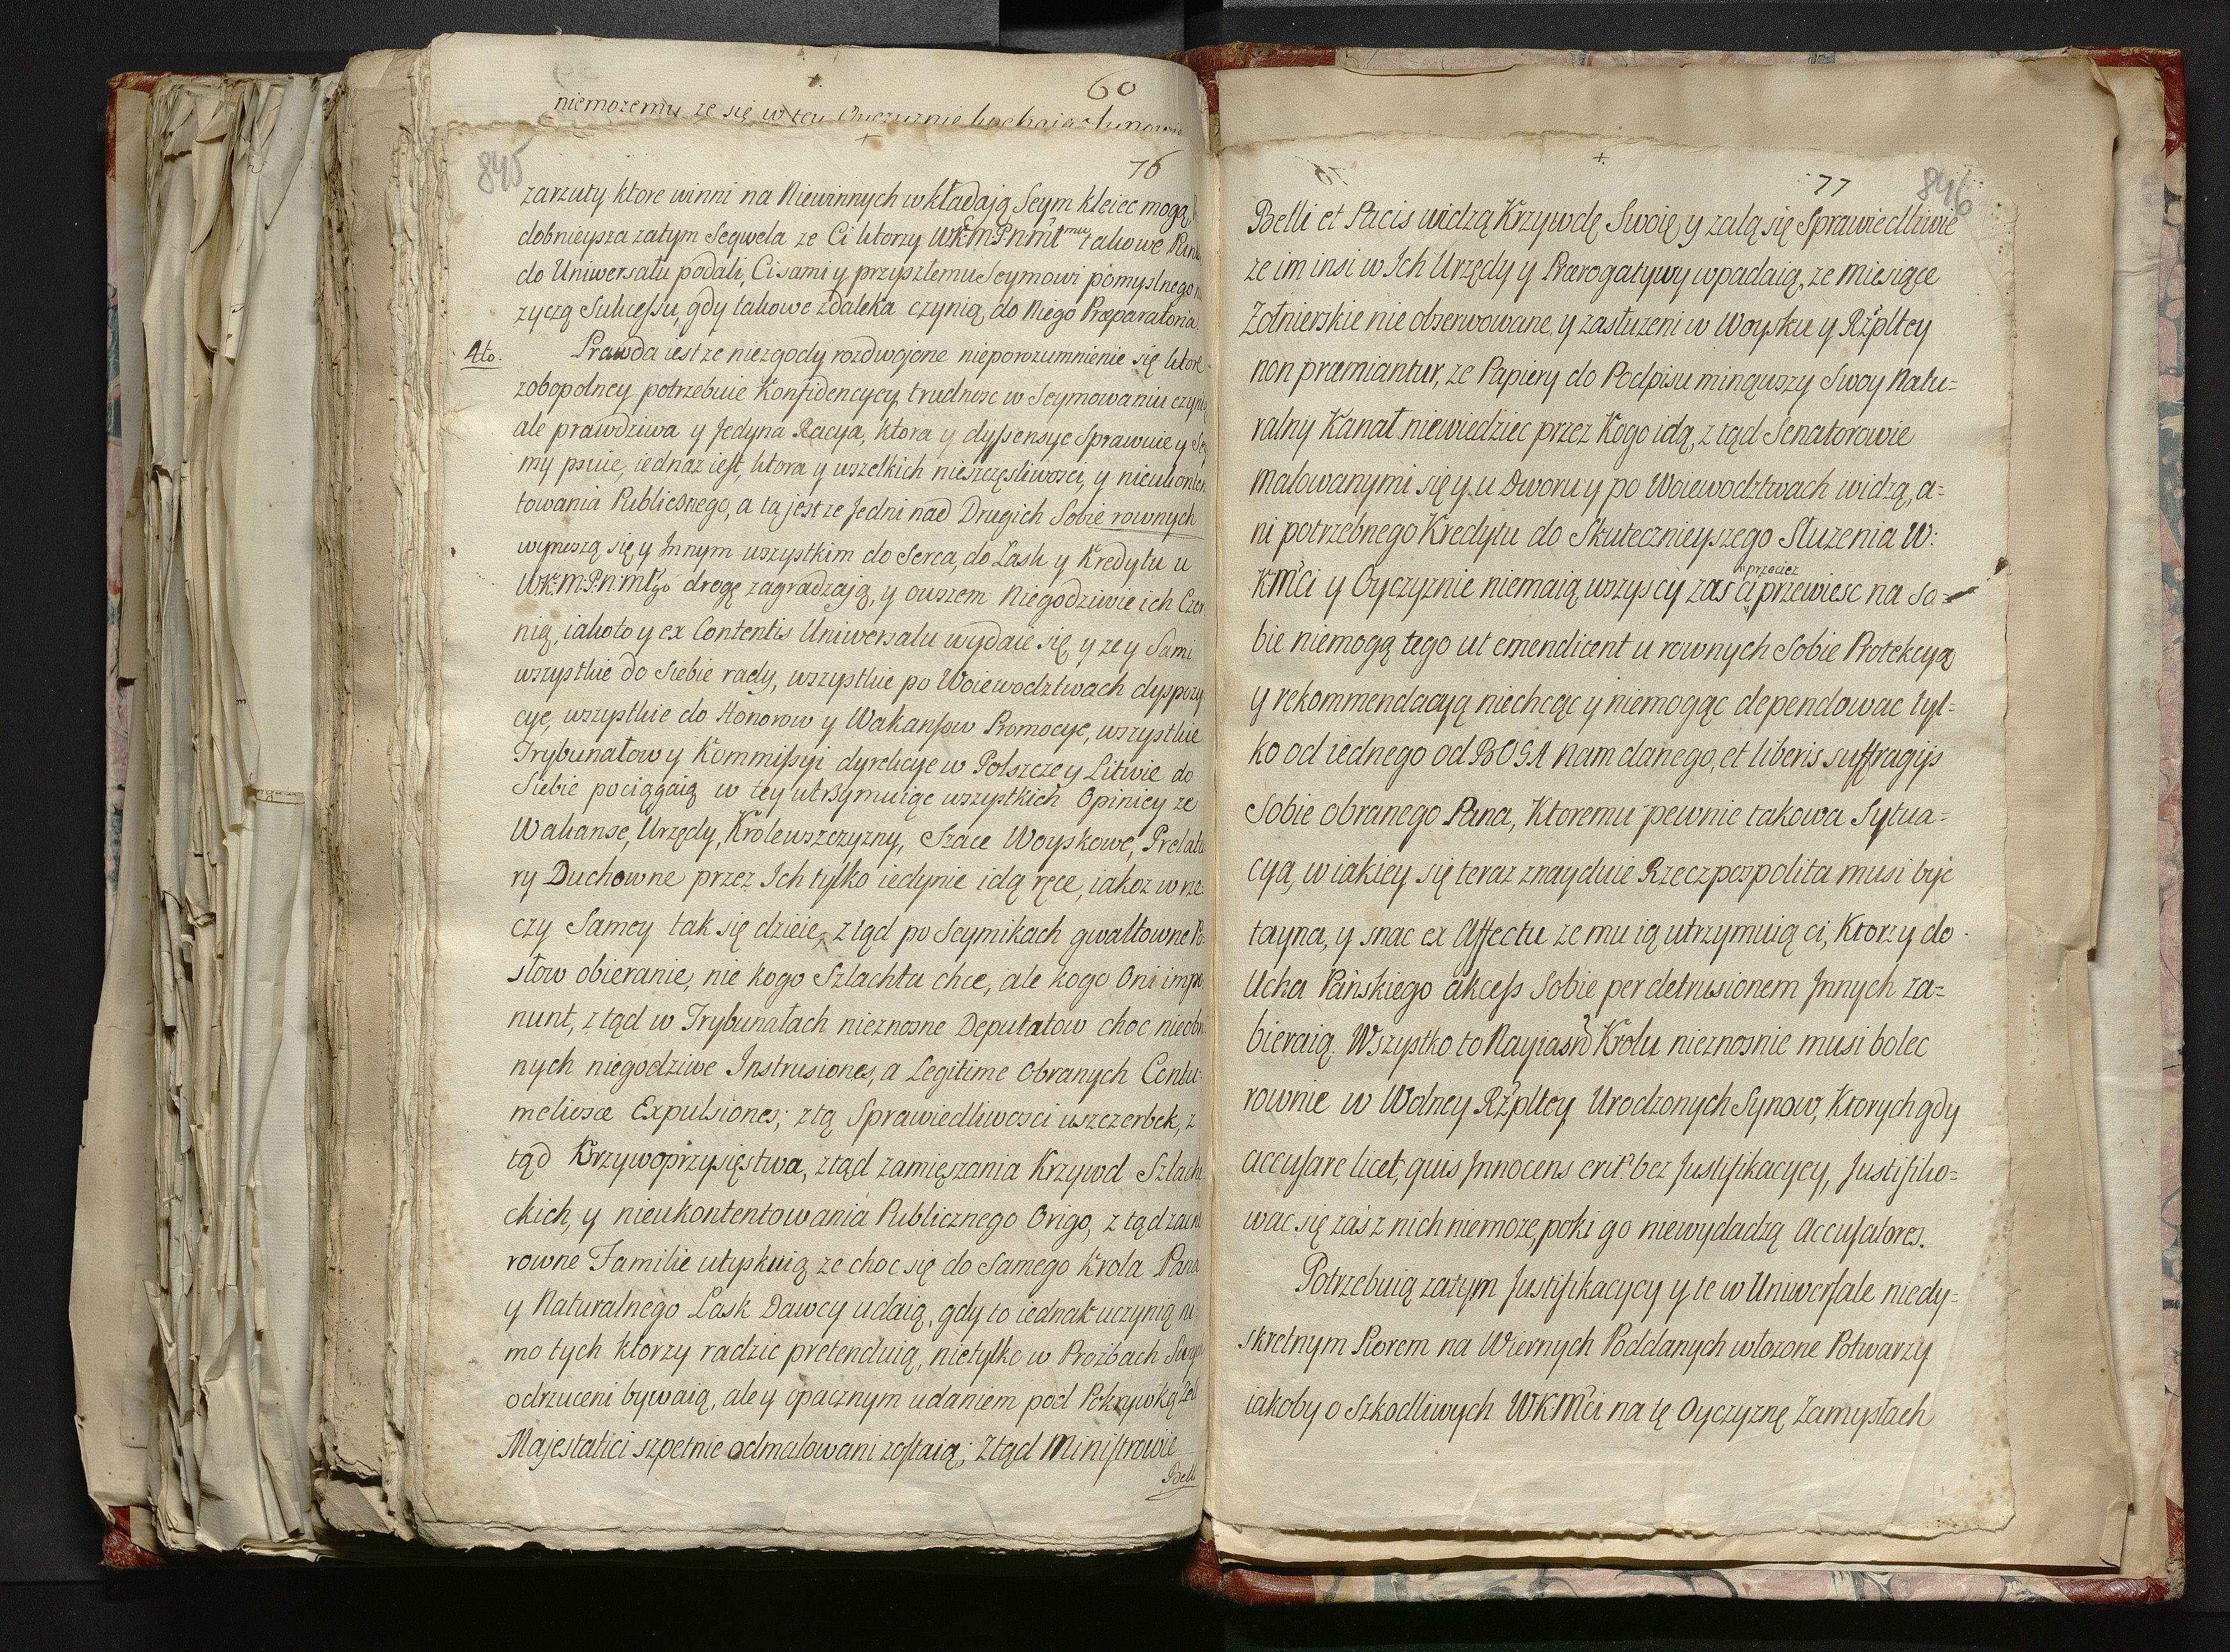 60
niemozemy ze się w tey Oyczyznie
845
76
zarzuty ktore winni na Niewinnych wkładają Seym kleiec mogą
dobnieysza zatym Seqwela ze Ci ktorzy WKMPNMłmu takowe Pun
do Uniwersału podali, Ci sami y przyszłemu Seymowi pomyslnego
zyczą Sukcessu, gdy takowe zdaleka czynią do Niego Præparatoria.
4to. Prawda iest ze niezgody rozdwojone nieporozumnienie się ktore
zobopolney potrzebuie Konfidencycy trudnosc w Seymowaniu czyni
ale prawdziwa y Jedyna Racya, ktora y dyssensye Sprawuie y Sey
my psuie, iednaz iest, ktora y wszelkich nieszczęsliwosci, y nieukonten
towania Publicznego, a ta jest ze Jedni nad Drugich Sobie rownych
wynoszą się y Innym wszystkim do Serca, do Lask y Kredytu u
WKMPNMłgo drogę zagradzają, y owszem Niegodziwie ich Czer
nią, iakoto y ex Contentis Uniwersału wydaie się y ze y Sami
wszystkie do Siebie rady, wszystkie po Woiewodztwach dyspozy
cye, wszystkie do Honorow y Wakansow Promocye, wszystkie
Trybunałow y Kommissyi dyrekcye w Polszcze y Litwie do
Siebie pociągaią w tey utrzymuiąc wszystkich Opiniey ze
Wakanse, Urzędy, Krolewszczyzny, Szarze Woyskowe, Prelatu
ry Duchowne przez Ich tylko iedynie idą ręce, iakoz w rze
czy Samey tak się dzieie, z tąd po Seymikach gwałtowne Po
słow obieranie, nie kogo Szlachta chce, ale kogo Oni impo
nunt, z tąd w Trybunałach nieznosne Deputatow choc nieobra
nych niegodziwe Instrusiones, a Legitime Obranych Contu
meliosæ Expulsiones; z tą Sprawiedliwosci uszczerbek, z
tąd Krzywoprzysięstwa, ztąd zamięszania Krzywd Szlach
ckich, y nieukontentowania Publicznego Origo, z tąd zacne
rowne Familie utyskuią ze choc się do Samego Krola Pana
y Naturalnego Lask Dawcy udaią, gdy to iednak uczynią mi
mo tych ktorzy radzic pretenduią, nietylko w Prozbach Swych
odrzuceni bywaią, ale y opacznym udaniem pod Pokrywką Zeli
Majestatici szpetnie odmalowani zostaią; Ztąd Ministrowie
Belli
77
846
Belli et Pacis widzą Krzywdę Swoię y zalą się Sprawiedliwie
ze im insi w Ich Urzędy y Prærogatywy wpadaią, ze Miesiące
Zołnierskie nie obserwowane, y zasłuzeni w Woysku y Rzpltey
non præmiantur, ze Papiery do Podpisu minąwszy Swoy Natu=
ralny Kanał niewiedziec przez Kogo idą, z tąd Senatorowie
Malowanymi się y u Dworu y po Woiewodztwach widzą, a=
ni potrzebnego Kredytu do Skutecznieyszego Słuzenia W:
KMci y Oyczyznie niemaią, wszyscy zas ci przecież przewiesc na So=
bie niemogą tego ut emendicent u rownych Sobie Protekcyą
y rekommendacyą niechcąc y niemogąc dependowac tyl=
ko od iednego od BOGA Nam danego, et liberis suffragijs
Sobie obranego Pana, Ktoremu pewnie takowa Sytua=
cya, w iakiey się teraz znayduie Rzeczpospolita musi byc
tayna, y snac ex Affectu ze mu ią utrzymuią ci, Ktorzy do
Ucha Pańskiego akcess Sobie per detrusionem Innych za=
bieraią. Wszystko to Nayiasń Krolu nieznosnie musi bolec
rownie w Wolney Rzpltey Urodzonych Synow, Ktorych gdy
accusare licet, quis Innocens erit? bez Justifikacyey, Justifiko=
wac się zas z nich niemoze, poki go niewydadzą Accusatores.
Potrzebuią zatym Justifikacycy y te w Uniwersale niedy=
skretnym Piorem na Wiernych Poddanych włozone Potwarzy
iakoby o Szkodliwych WKMci na tę Oyczyznę Zamysłach